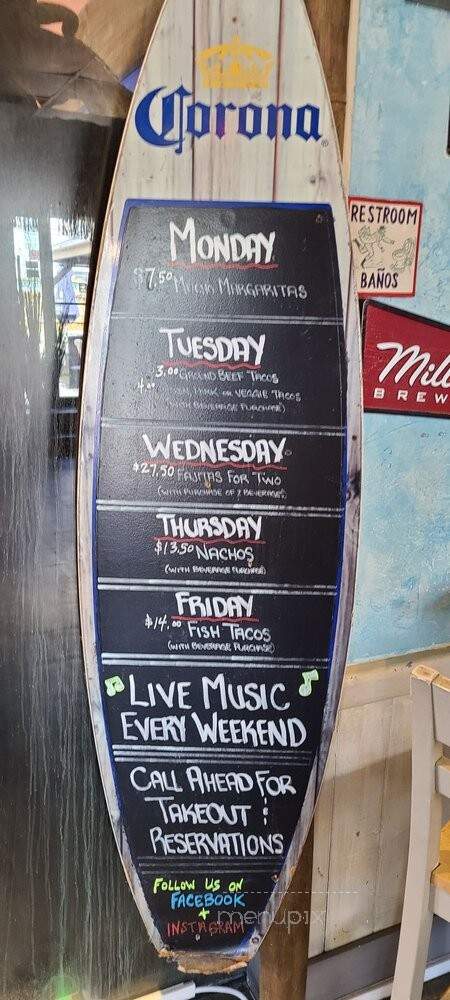 Corona
MONDAY
$7.50 MUCHO MARGARITAS
TUESDAY
3.00 GROUND BEEF TACOS
4.00 PORK OR VEGGIE TACOS
(WITH BEVERAGE PURCHASE)
WEDNESDAY
$27.50 FAJITAS FOR TWO
(WITH PURCHASE OF 2 BEVERAGES)
THURSDAY
$13.50 NACHOS
(WITH BEVERAGE PURCHASE)
FRIDAY
$14.00 FISH TACOS
(WITH BEVERAGE PURCHASE)
LIVE MUSIC
EVERY WEEKEND
CALL AHEAD FOR
TAKEOUT :
RESERVATIONS
FOLLOW US ON
FACEBOOK
+
INSTAGRAM
menupix
RESTROOM
BAÑOS
Mill
BREW